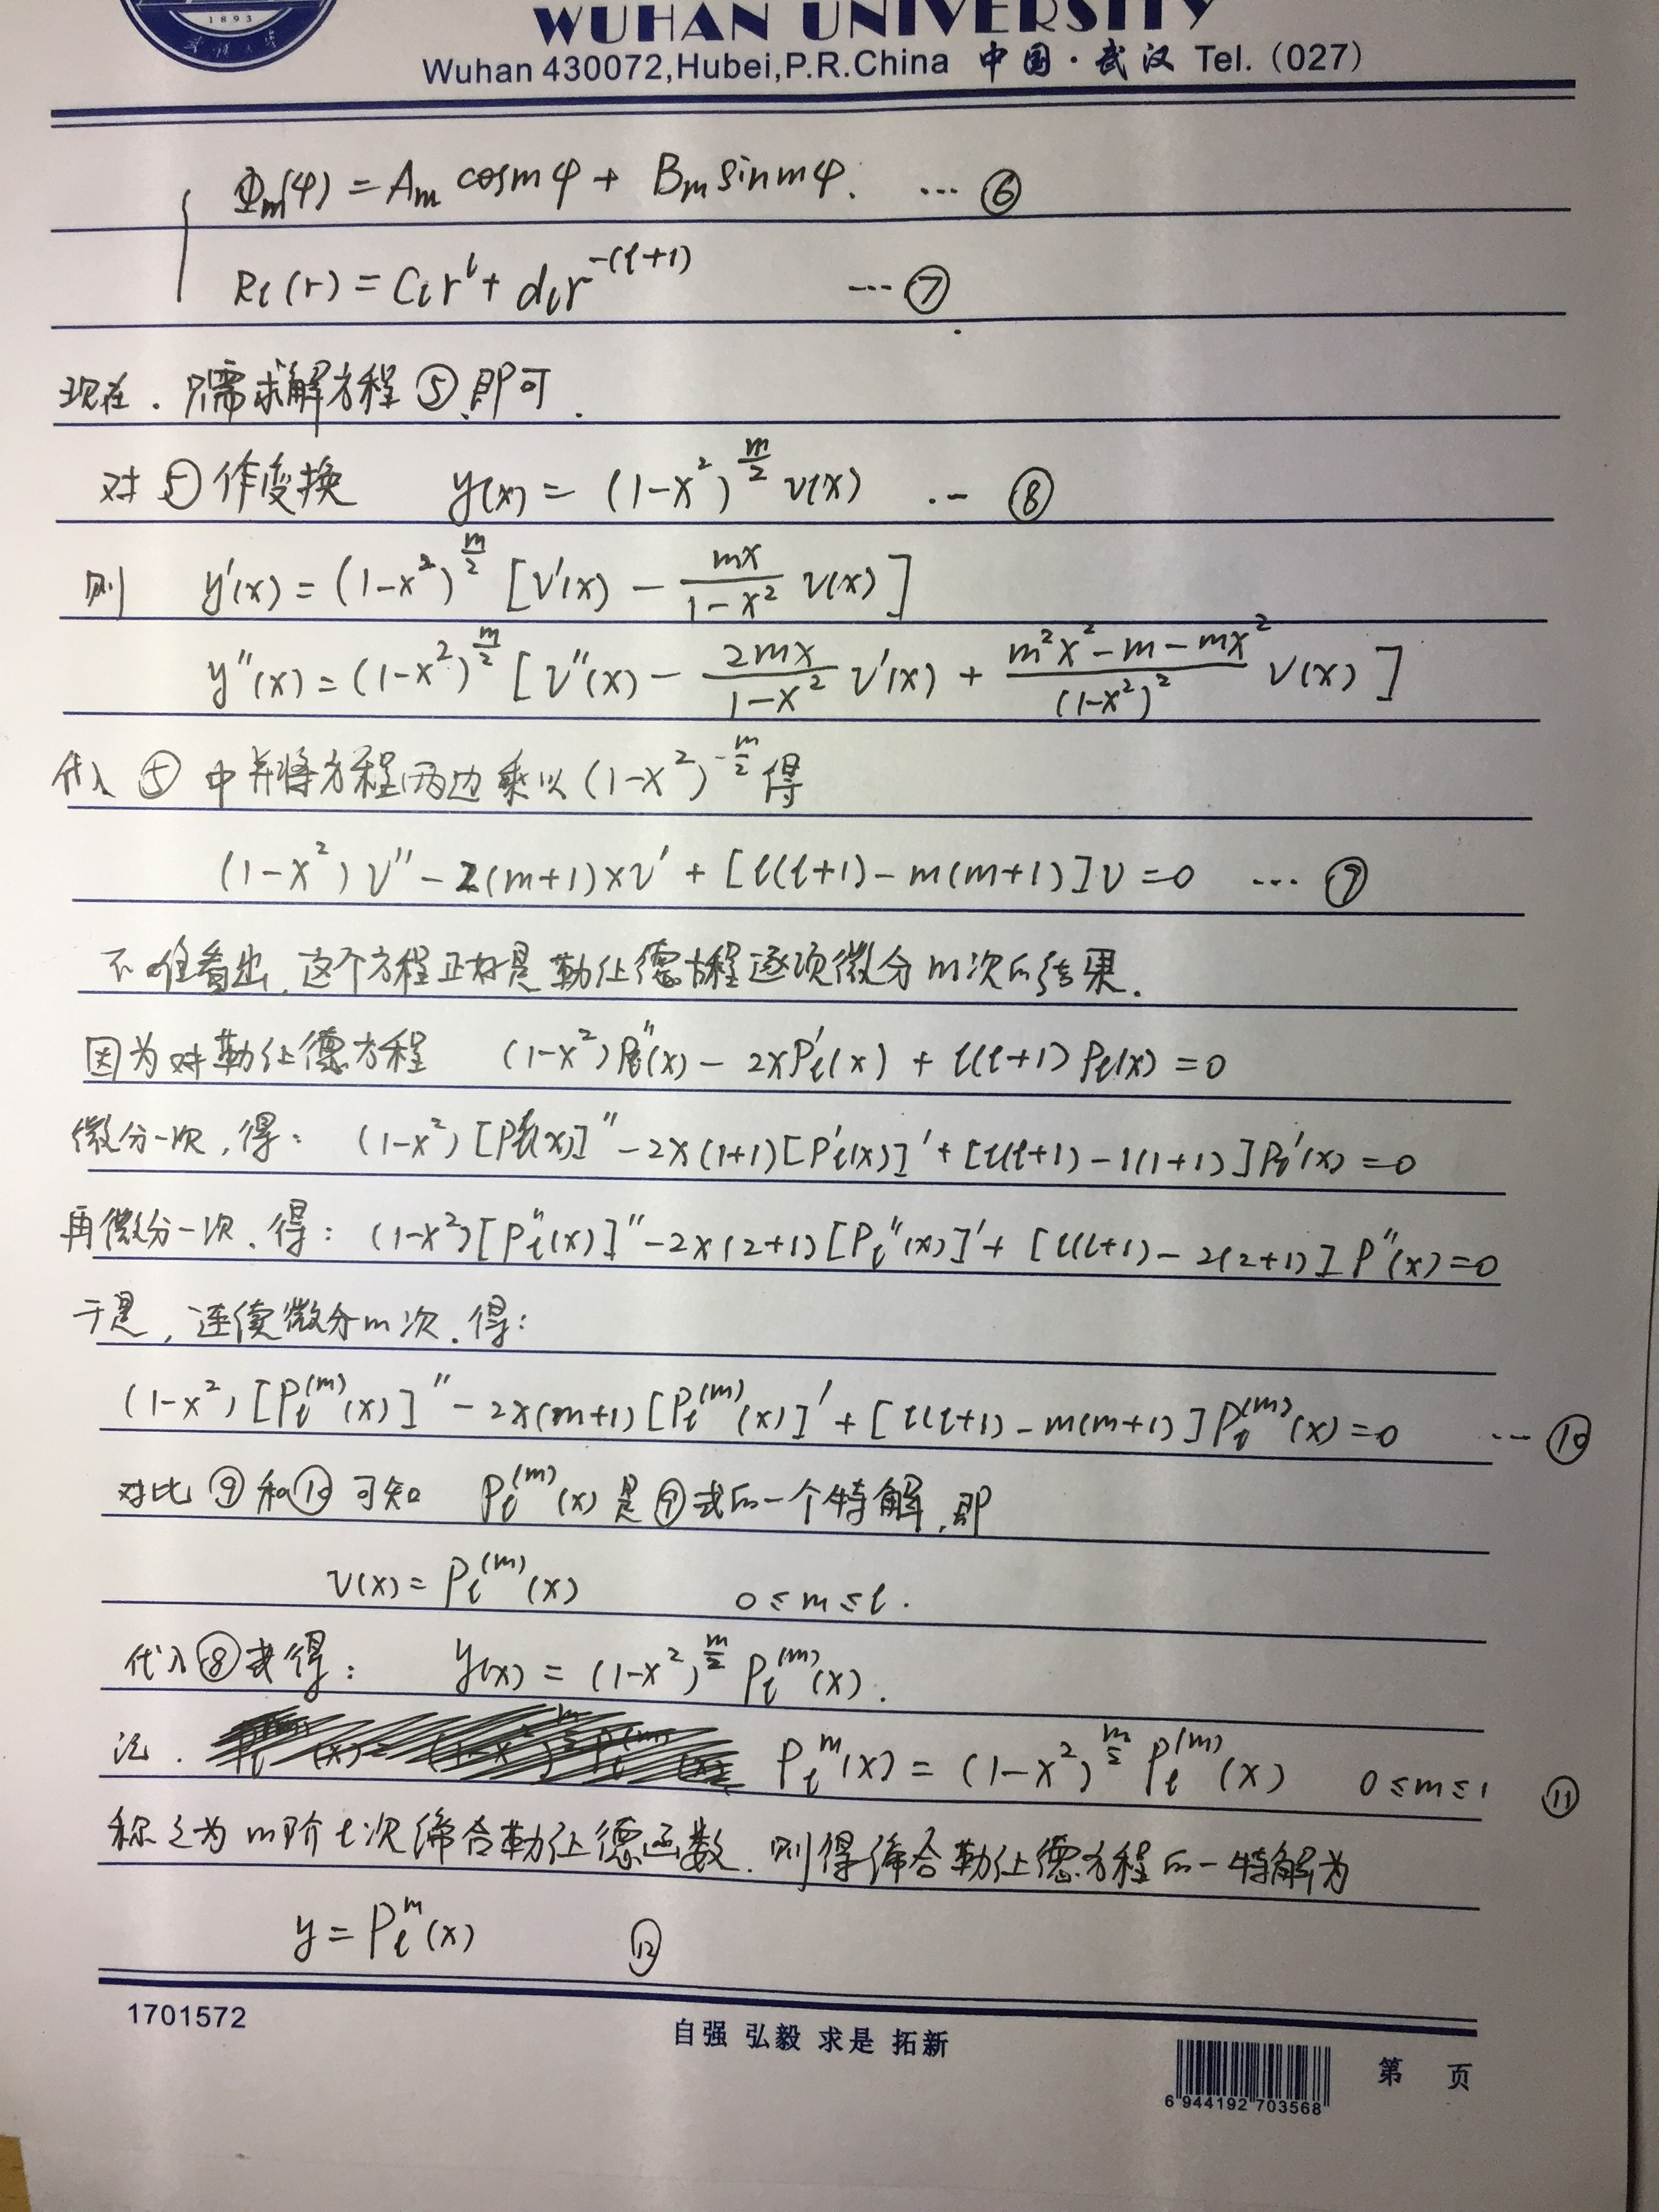 1893
WUHAN UNIVERSITY
Wuhan 430072,Hubei,P.R.China 中国·武汉 Tel. (027)
Φₘ(φ) = Aₘ cosmφ + Bₘ sinmφ. … ⑥
Rₗ(r) = Cₗ r^l + dₗ r^{-(l+1)} … ⑦
现在. 只需求解方程⑤即可.
对⑤作变换 y(x) = (1-x²)^{m/2} v(x) … ⑧
则 y'(x) = (1-x²)^{m/2} [v'(x) - \frac{mx}{1-x²} v(x)]
y''(x) = (1-x²)^{m/2} [v''(x) - \frac{2mx}{1-x²} v'(x) + \frac{m²x²-m-mx²}{(1-x²)²} v(x)]
代入⑤中并将方程两边乘以(1-x²)^{-m/2}得
(1-x²)v'' - 2(m+1)xv' + [l(l+1) - m(m+1)]v = 0 … ⑨
不难看出,这个方程正好是勒让德方程逐项微分m次的结果.
因为对勒让德方程 (1-x²)Pₗ''(x) - 2xPₗ'(x) + l(l+1)Pₗ(x) = 0
微分一次,得: (1-x²)[Pₗ'(x)]'' - 2x(1+1)[Pₗ'(x)]' + [l(l+1) - 1(1+1)]Pₗ'(x) = 0
再微分一次,得: (1-x²)[Pₗ''(x)]'' - 2x(2+1)[Pₗ''(x)]' + [l(l+1) - 2(2+1)]P''(x) = 0
于是,连续微分m次,得:
(1-x²)[Pₗ^{(m)}(x)]'' - 2x(m+1)[Pₗ^{(m)}(x)]' + [l(l+1) - m(m+1)]Pₗ^{(m)}(x) = 0 … ⑩
对比⑨和⑩可知 Pₗ^{(m)}(x)是⑨式的一个特解,即
v(x) = Pₗ^{(m)}(x) 0≤m≤l.
代入⑧式得: y(x) = (1-x²)^{m/2} Pₗ^{(m)}(x).
记. Pₗ^m(x) = (1-x²)^{m/2} Pₗ^{(m)}(x) 0≤m≤l ⑪
称之为m阶l次缔合勒让德函数.则得缔合勒让德方程的一特解为
y = Pₗ^m(x) ⑫
1701572
自强 弘毅 求是 拓新
6 944192 703568
第 页